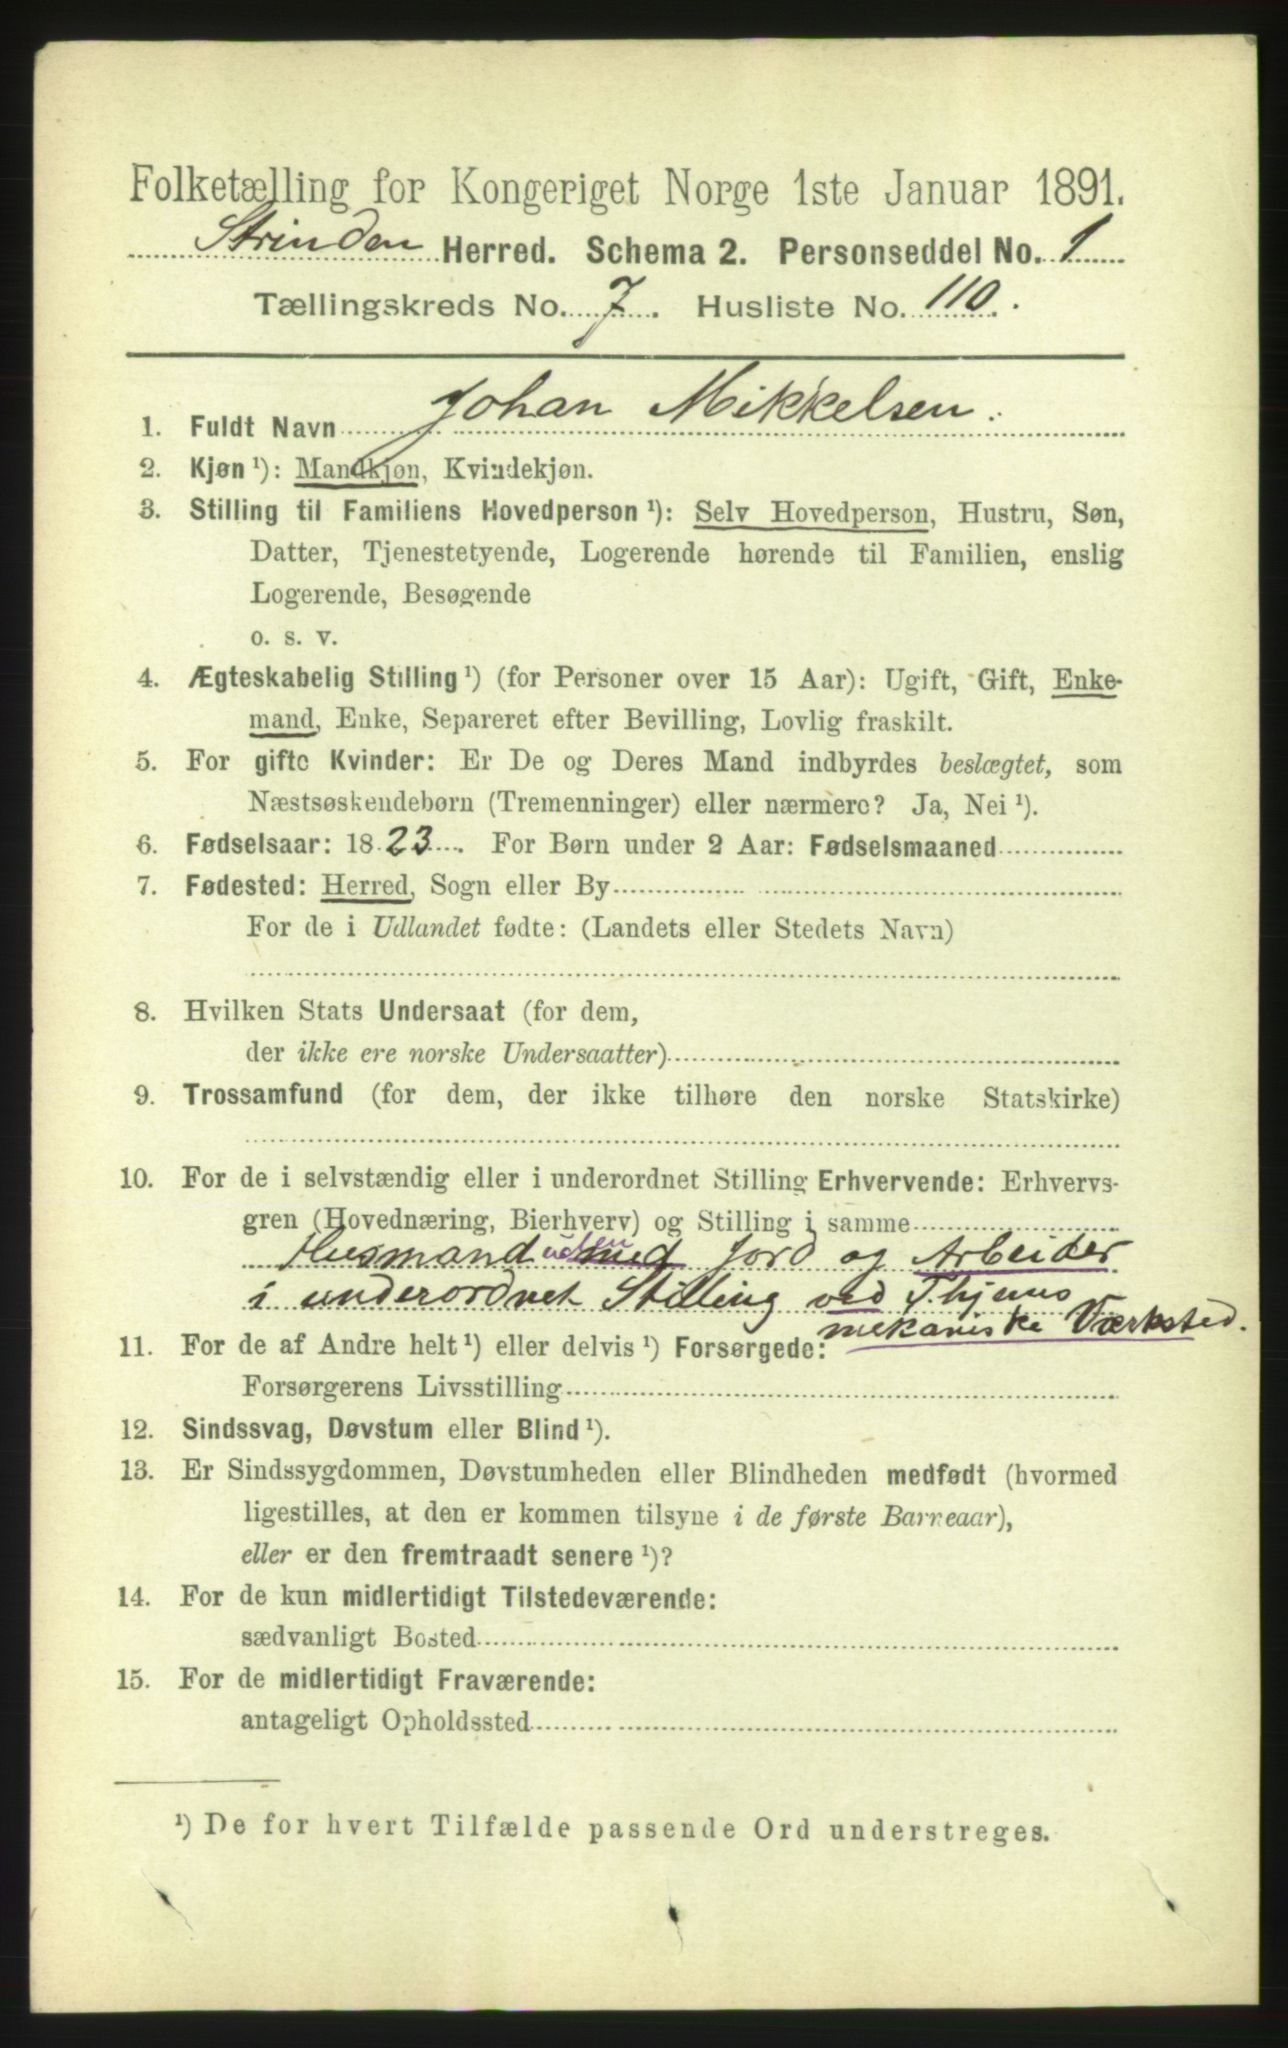 Folketælling for Kongeriget Norge 1ste Januar 1891.
Strinden Herred. Schema 2. Personseddel No. 1
Tællingskreds No. 7. Husliste No. 110.
1. Fuldt Navn Johan Mikkelsen.
2. Kjøn ¹): Mandkjøn, Kvindekjøn.
3. Stilling til Familiens Hovedperson ¹): Selv Hovedperson, Hustru, Søn,
Datter, Tjenestetyende, Logerende hørende til Familien, enslig
Logerende, Besøgende
o. s. v.
4. Ægteskabelig Stilling ¹) (for Personer over 15 Aar): Ugift, Gift, Enke-
mand, Enke, Separeret efter Bevilling, Lovlig fraskilt.
5. For gifte Kvinder: Er De og Deres Mand indbyrdes beslægtet, som
Næstsøskendebørn (Tremenninger) eller nærmere? Ja, Nei ¹).
6. Fødselsaar: 1823. For Børn under 2 Aar: Fødselsmaaned
7. Fødested: Herred, Sogn eller By
For de i Udlandet fødte: (Landets eller Stedets Navn)
8. Hvilken Stats Undersaat (for dem,
der ikke ere norske Undersaatter)
9. Trossamfund (for dem, der ikke tilhøre den norske Statskirke)
10. For de i selvstændig eller i underordnet Stilling Erhvervende: Erhvervs-
gren (Hovednæring, Bierhverv) og Stilling i samme
Husmand uden med Jord og Arbeider
i underordnet Stilling ved
mekaniske Værksted.
11. For de af Andre helt ¹) eller delvis ¹) Forsørgede:
Forsørgerens Livsstilling
12. Sindssvag, Døvstum eller Blind ¹).
13. Er Sindssygdommen, Døvstumheden eller Blindheden medfødt (hvormed
ligestilles, at den er kommen tilsyne i de første Barneaar),
eller er den fremtraadt senere ¹)?
14. For de kun midlertidigt Tilstedeværende:
sædvanligt Bosted
15. For de midlertidigt Fraværende:
antageligt Opholdssted
¹) De for hvert Tilfælde passende Ord understreges.